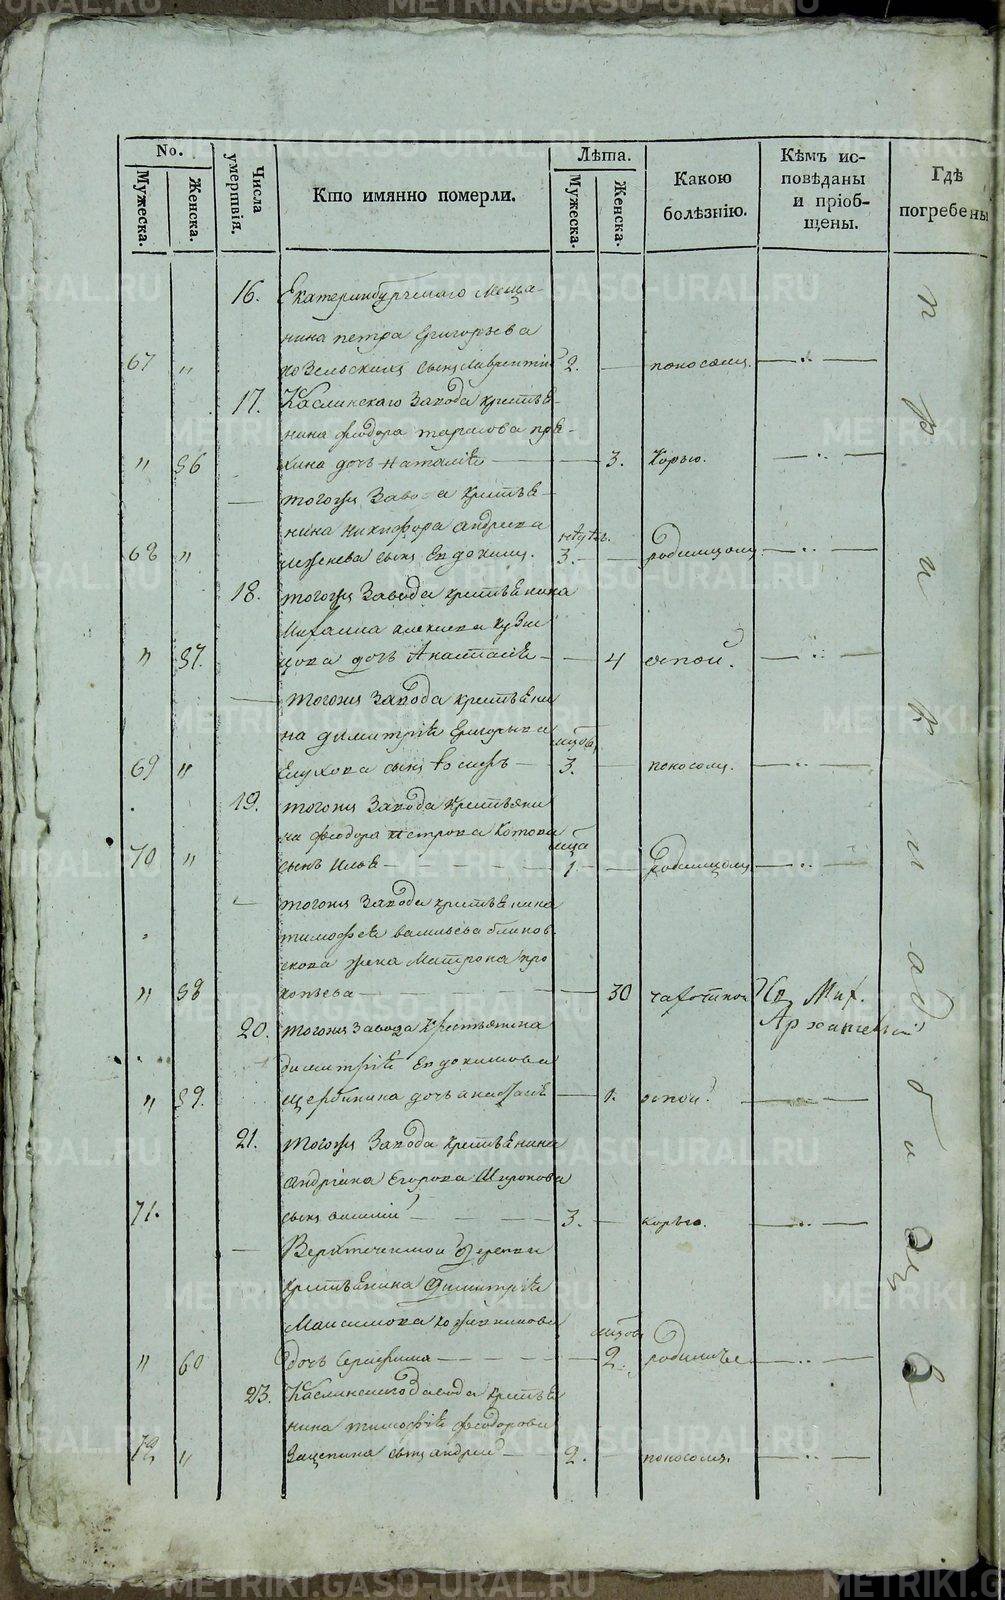 METRIKI.GASO-URAL.RU
No.
Мужеска.
Женска.
Числа умертвія.
Кто имянно померли.
Лѣта.
Мужеска.
Женска.
Какою болѣзнію.
Кѣмъ исповѣданы и пріобщены.
Гдѣ погребены
16. Екатеринбургскаго Меща-
нина петра Григорьева
67 " сынъ Лаврентій 2. — поносомъ. — " —
17. Каслинскаго Завода крестья-
нина феодора тарасова
" 56 дочь Наталія — 3. Корью. — " —
— тогожъ Завода крестья-
нина Никифора андреева
68 " сынъ Евдокимъ. 3. — родимцомъ — " —
18. тогожъ Завода крестьянина
Михаила алексеева Кузне-
" 57. цова дочь Анастасія — 4 оспой. — " —
— тогожъ Завода крестьяни
на димитрія Григорьева
69 " Глухова сынъ Іосифъ — 3. — поносомъ. — " —
19. тогожъ Завода Крестьяни
на феодора петрова Котова
70 " сынъ Илья — 1 — родимцомъ — " —
— тогожъ Завода крестьянина
тимофея васильева блинов-
скова жена Матрона про
" 58 копьева — 30 чахоткою Iер. Мих.
Архангельскій
20. тогожъ Завода Крестьянина
димитрія Евдокимова
" 59. Щербинина дочь — 1. оспой. — " —
21. тогожъ Завода крестьянина
андріана Егорова Широкова
71. сынъ василий — 3. — корью. — " —
— Верхтеченской деревни
крестьянина Димитрія
Максимова Кожевникова
мѣсецовъ
" 60 дочь Серафима — 2. родимче — " —
23. Каслинскаго Завода крестья
нина тимофея феодорова
72 " Зацепина сынъ андрей — 2. — поносомъ. — " —
на приходскомъ